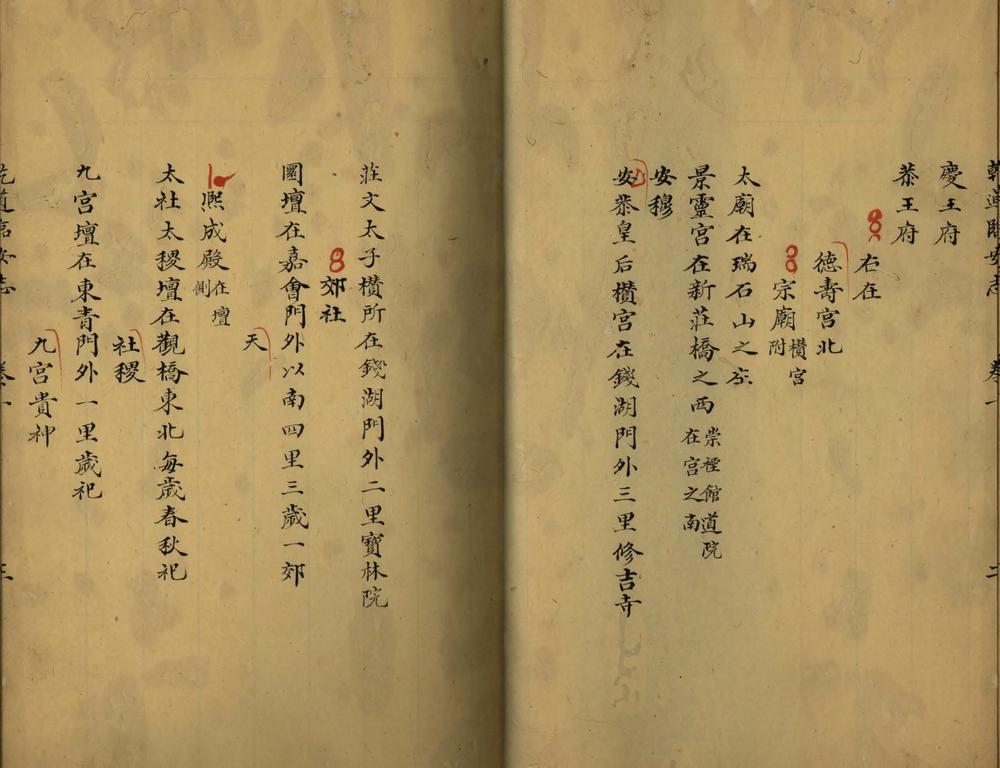 乾道臨安志 卷一 二
慶王府
恭王府
右在
德壽宮北
宗廟欑宮附
太廟在瑞石山之左
景靈宮在新莊橋之西崇禋館道院在宮之南
安穆
安恭皇后欑宮在錢湖門外三里修吉寺
莊文太子欑所在錢湖門外二里寶林院
郊社
圜壇在嘉會門外以南四里三歲一郊
天
熙成殿在壇側
太社太稷壇在觀橋東北每歲春秋祀
社稷
九宮壇在東青門外一里歲祀
九宮貴神
乾道臨安志 卷一 三